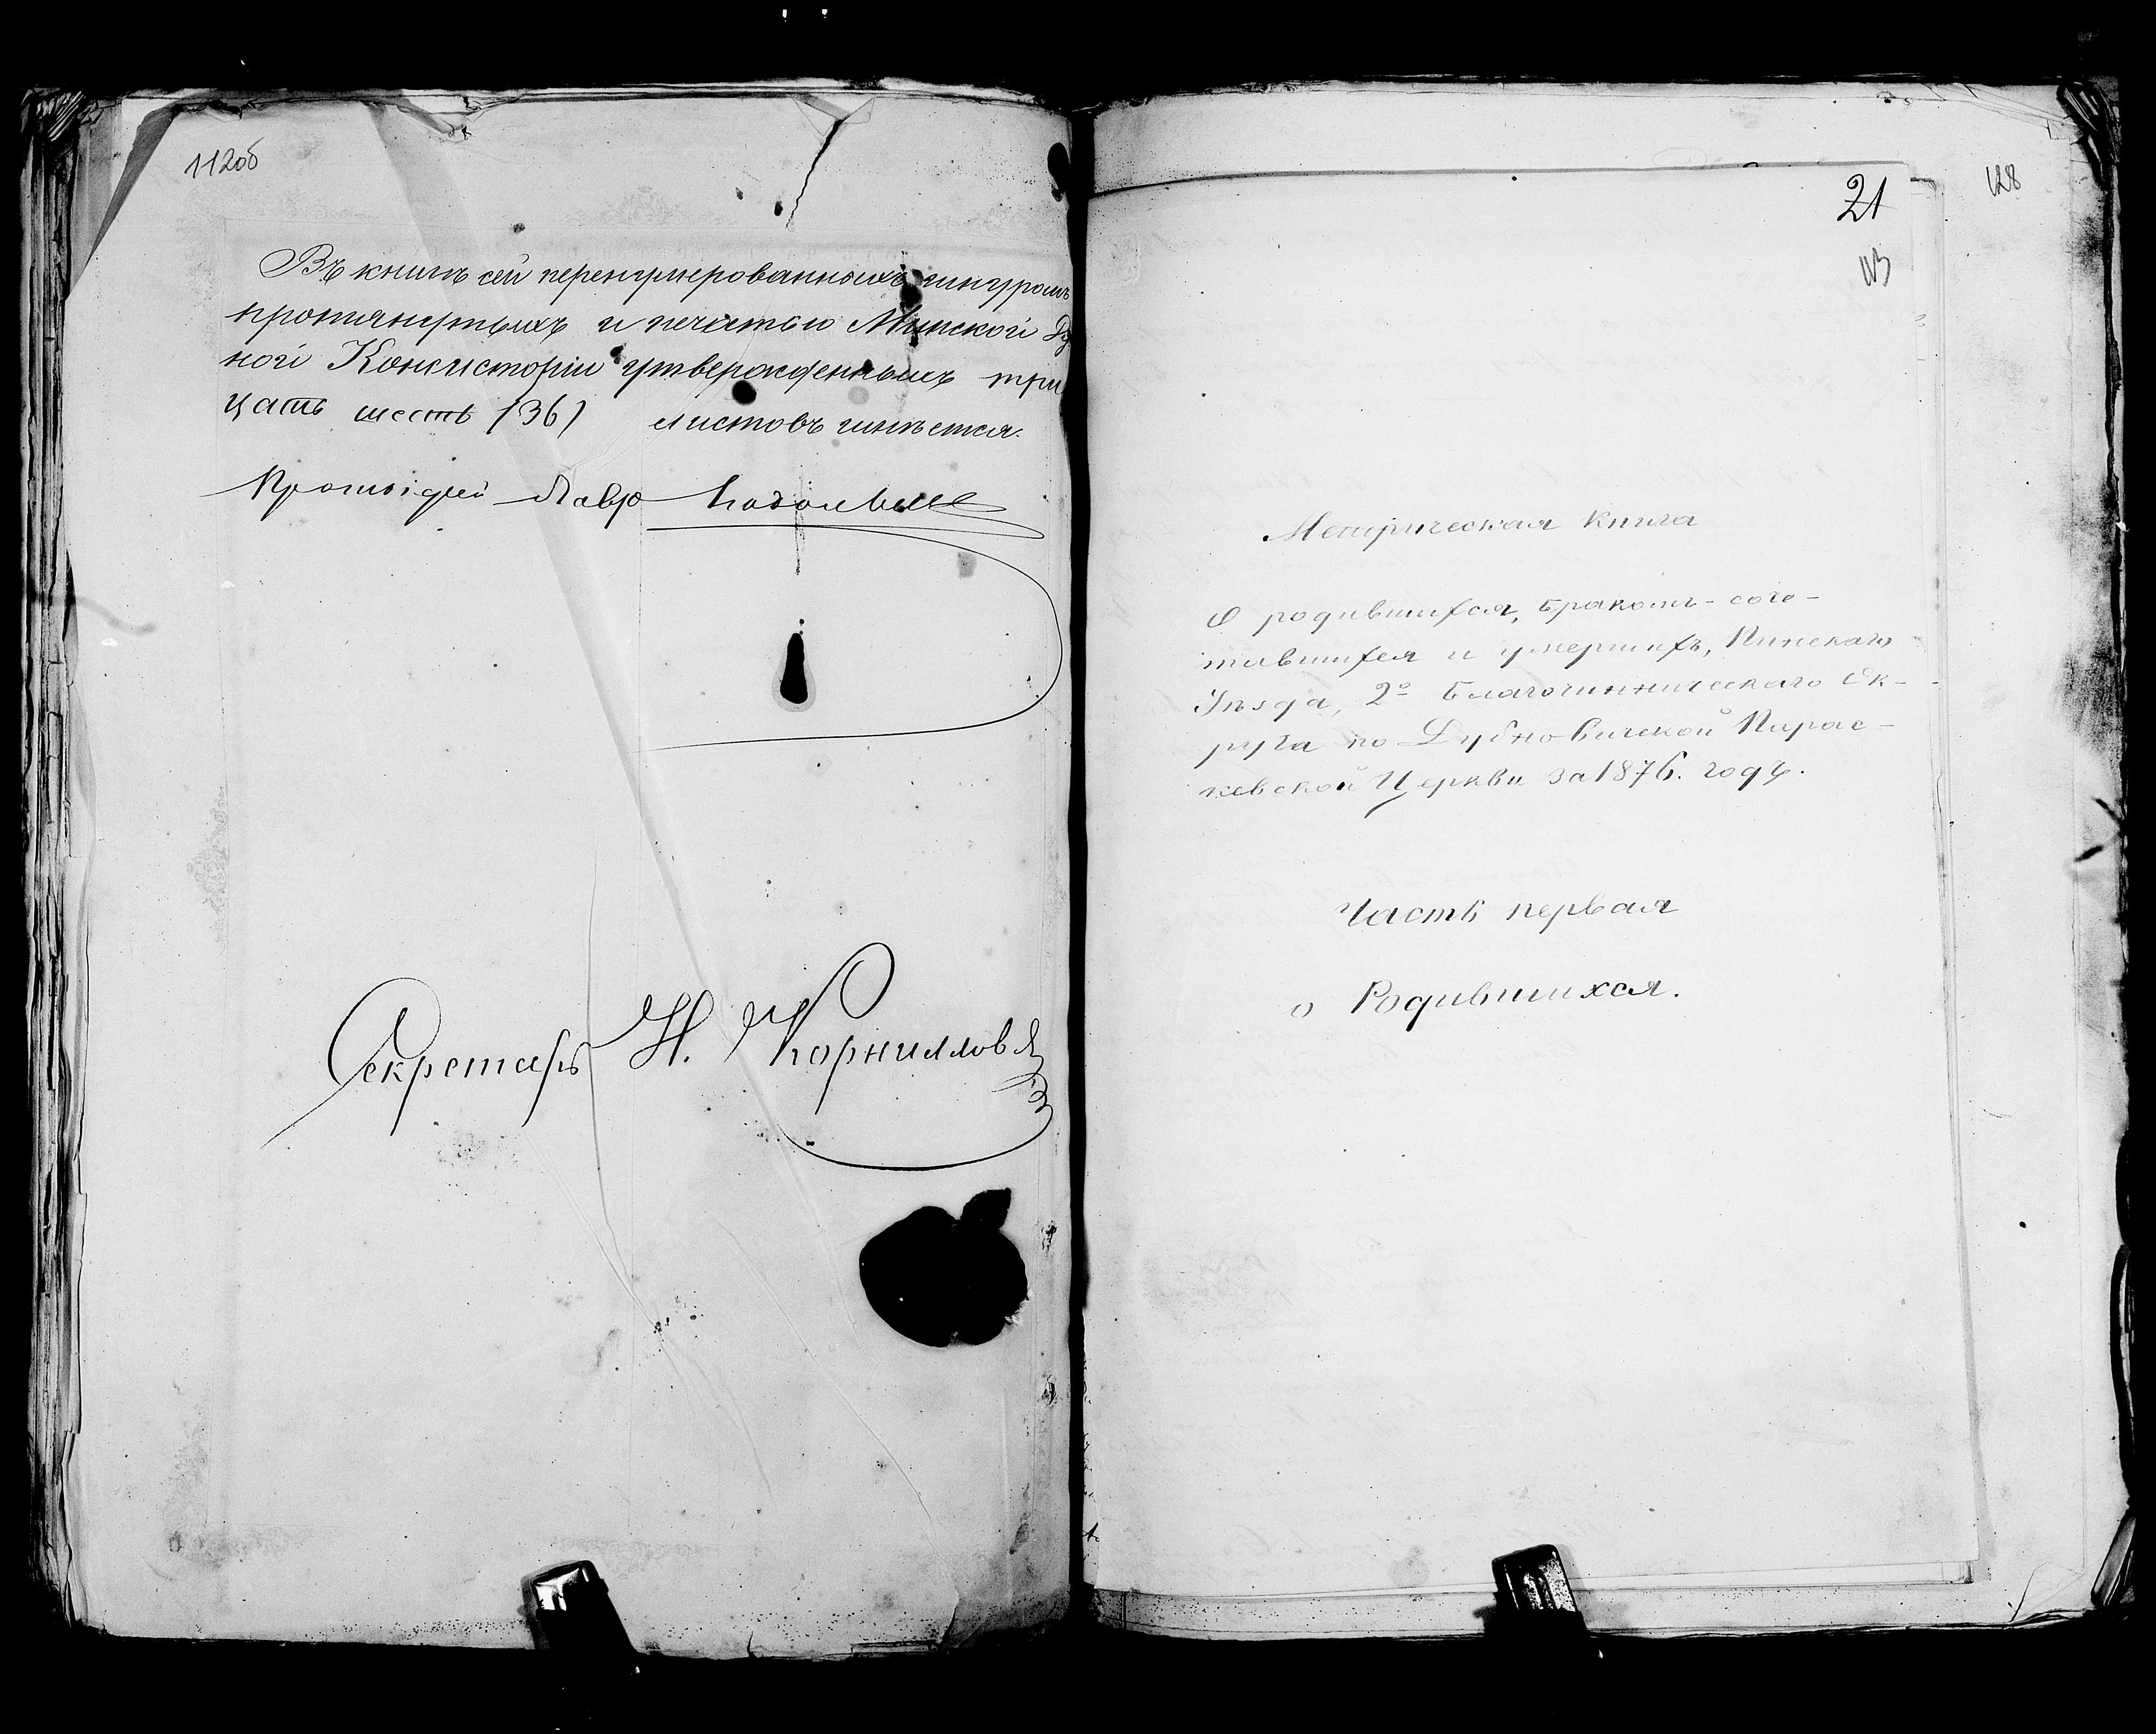 112об
Въ книгѣ сей перенумерованныхъ шнуромъ
протянутыхъ и печатью Минской Ду
ной Консисторіи утвержденныхъ три
цать шесть (36) листовъ имѣется.
Протоіерей
Секретарь Н. Корниллов
21
128
113
Метрическая книга
О родившихся, бракомъ-соче-
тавшихся и умершихъ, Пинскаго
Уѣзда, 2º Благочинническаго Ок-
руга по Дубновичской Парас-
кевской Церкви за 1876. годъ.
Часть первая
о Родившихся.